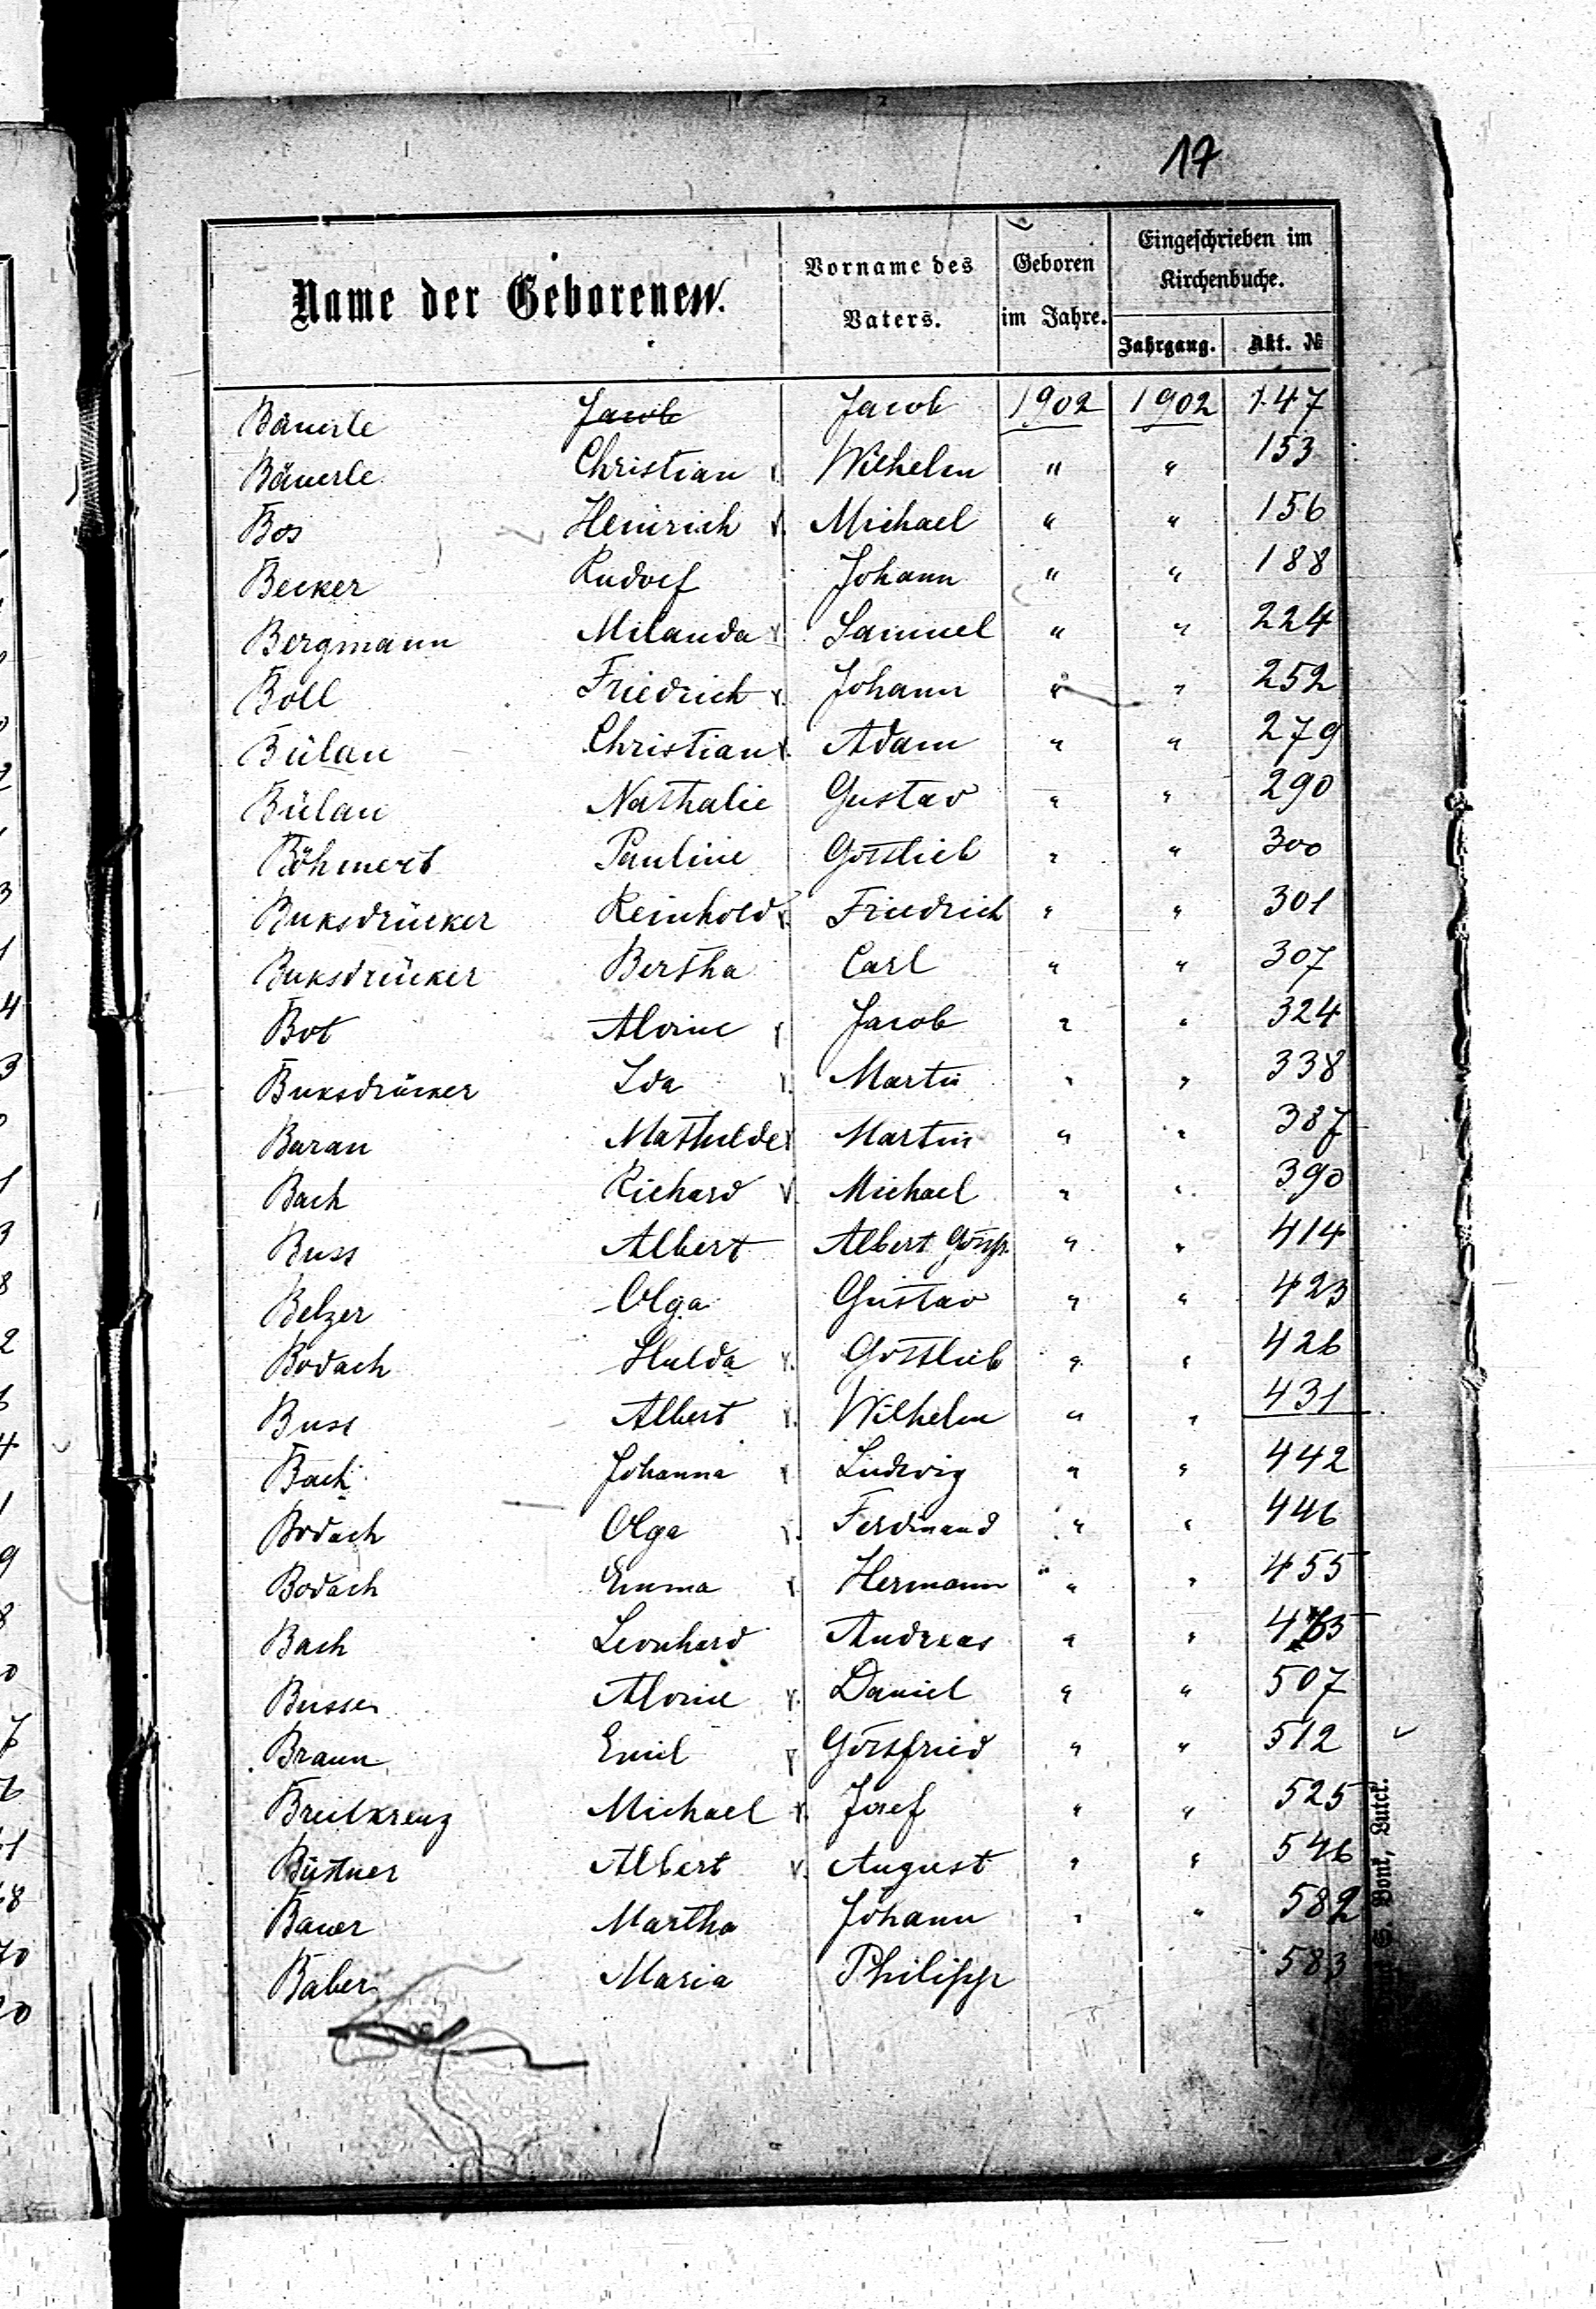 17
Name der Geborenen.
Vorname des Vaters.
Geboren im Jahre.
Eingeschrieben im Kirchenbuche.
Jahrgang. Akt. №
Bäuerle Jacob Jacob 1902 1902 147
Bäuerle Christian Wilhelm " " 153
Bos Heinrich Michael " " 156
Becker Rudolf Johann " " 188
Bergmann Milanda Samuel " " 224
Boll Friedrich Johann " " 252
Bülau Christian Adam " " 279
Bülau Nathalie Gustav " " 290
Böhmert Pauline Gottlieb " " 300
Buksdrücker Reinhold Friedrich " " 301
Buksdrücker Bertha Carl " " 307
Bot Alvine Jacob " " 324
Buksdrücker Ida Martin " " 338
Baran Mathilde Martin " " 387
Bach Richard Michael " " 390
Buss Albert Albert Gottfr. " " 414
Belzer Olga Gustav " " 423
Bodach Hulda Gottlieb " " 426
Buss Albert Wilhelm " " 431
Bach Johanna Ludwig " " 442
Bodach Olga Ferdinand " " 446
Bodach Emma Hermann " " 455
Bach Leonhard Andreas " "
Busse Alvine Daniel " " 507
Braun Emil Gottfried " " 512
Breitkreuz Michael Josef " " 525
Büttner Albert August " " 546
Bauer Martha Johann " " 582
Baber Maria Philipp 583